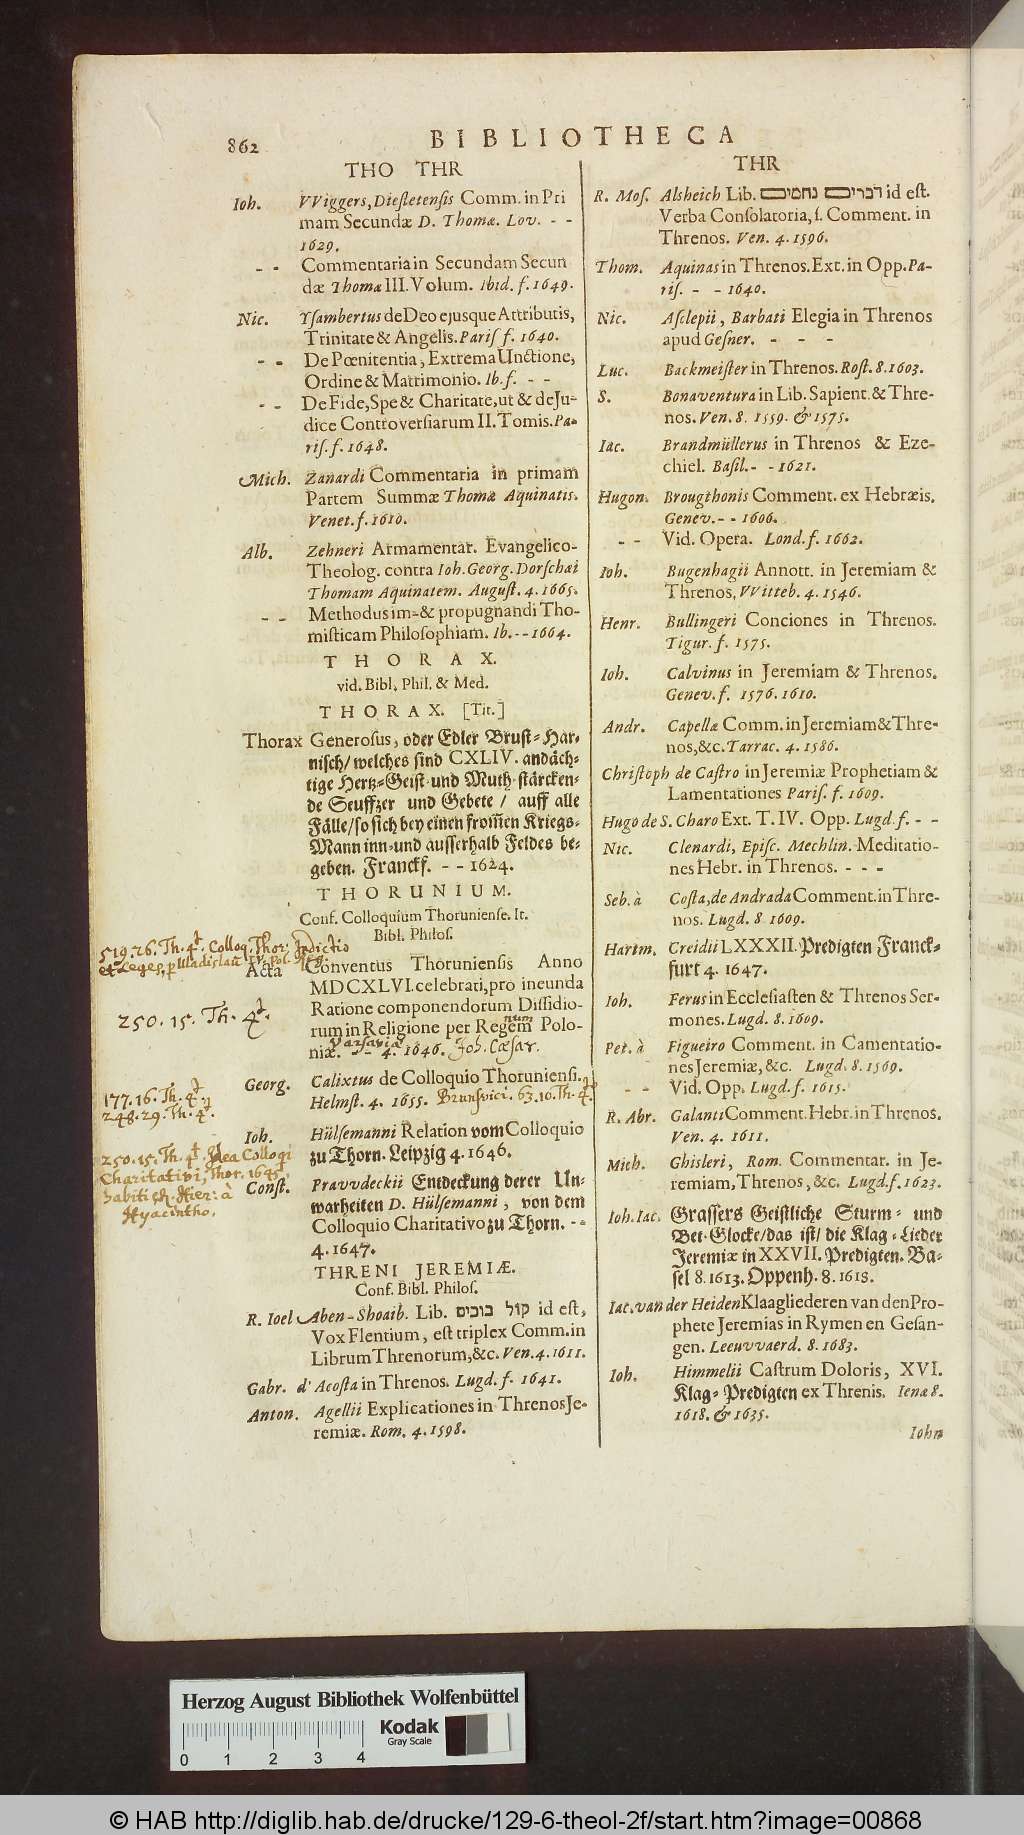 862
BIBLIOTHECA
THO THR
Ioh. VViggers, Diesletensis Comm. in Pri
mam Secundæ D. Thomæ. Lov. - -
1629.
- - Commentaria in Secundam Secun
dæ Thomæ III. Volum. Ibid. f. 1649.
Nic. Ysambertus de Deo ejusque Attributis,
Trinitate & Angelis. Paris f. 1640.
- - De Pœnitentia, Extrema Unctione,
Ordine & Matrimonio. Ib. f. - -
- - De Fide, Spe & Charitate, ut & de Ju-
dice Controversiarum II. Tomis. Pa-
ris. f. 1648.
Mich. Zanardi Commentaria in primam
Partem Summæ Thomæ Aquinatis.
Venet. f. 1610.
Alb. Zehneri Armamentar. Evangelico-
Theolog. contra Ioh. Georg. Dorschæi
Thomam Aquinatem. August. 4. 1665.
- - Methodus im- & propugnandi Tho-
misticam Philosophiam. Ib. - - 1664.
THORAX.
vid. Bibl. Phil. & Med.
THORAX. [Tit.]
Thorax Generosus, oder Edler Brust-Har-
nisch/ welches sind CXLIV. andäch-
tige Hertz-Geist-und Muth-stärcken-
de Seuffzer und Gebete/ auff alle
Fälle/ so sich bey einen from̃en Kriegs-
Mann inn-und ausserhalb Feldes be-
geben. Franckf. - - 1624.
THORUNIUM.
Conf. Colloquium Thoruniense. It.
Bibl. Philos.
519. 26. Th. 4t. Colloq. Thor: Indictio
et Leges, p Uladislau IV. Pol. Reg.
Acta Conventus Thoruniensis Anno
MDCXLVI. celebrati, pro ineunda
Ratione componendorum Dissidio-
250. 15. Th. 4t.
rum in Religione per Regem Polo-
niæ. - - 4. 1646. Joh. Cæsar.
Varsaviæ
Georg. Calixtus de Colloquio Thoruniensi.
Helmst. 4. 1655. Brunsvici. 63. 10. Th. 4t.
177. 16. Th. 4t.
248. 29. Th. 4t.
Ioh. Hülsemanni Relation vom Colloquio
zu Thorn. Leipzig 4. 1646.
250. 15. Th. 4t. Idea Colloqi
Charitativi, Thor. 1645
habiti Hier: à
Hyacintho.
Const. Pravvdeckii Entdeckung derer Un-
warheiten D. Hülsemanni, von dem
Colloquio Charitativo zu Thorn. - -
4. 1647.
THRENI JEREMIÆ.
Conf. Bibl. Philos.
R. Ioel Aben-Shoaib. Lib. קול בוכים id est,
Vox Flentium, est triplex Comm. in
Librum Threnorum, &c. Ven. 4. 1611.
Gabr. d' Acosta in Threnos. Lugd. f. 1641.
Anton. Agellii Explicationes in Threnos Je-
remiæ. Rom. 4. 1598.
THR
R. Mos. Alsheich Lib. דברים נחמים id est.
Verba Consolatoria, s. Comment. in
Threnos. Ven. 4. 1596.
Thom. Aquinas in Threnos. Ext. in Opp. Pa-
ris. - - 1640.
Nic. Asclepii, Barbati Elegia in Threnos
apud Gesner. - - -
Luc. Backmeister in Threnos. Rost. 8. 1603.
S. Bonaventura in Lib. Sapient. & Thre-
nos. Ven. 8. 1559. & 1575.
Iac. Brandmüllerus in Threnos & Eze-
chiel. Basil. - - 1621.
Hugon. Brougthonis Comment. ex Hebræis.
Genev. - - 1606.
- - Vid. Opera. Lond. f. 1662.
Ioh. Bugenhagii Annott. in Jeremiam &
Threnos, VVitteb. 4. 1546.
Henr. Bullingeri Conciones in Threnos.
Tigur. f. 1575.
Ioh. Calvinus in Jeremiam & Threnos.
Genev. f. 1576. 1610.
Andr. Capellæ Comm. in Jeremiam & Thre-
nos, &c. Tarrac. 4. 1586.
Christoph de Castro in Jeremiæ Prophetiam &
Lamentationes Paris. f. 1609.
Hugo de S. Charo Ext. T. IV. Opp. Lugd. f. - -
Nic. Clenardi, Episc. Mechlin. Meditatio-
nes Hebr. in Threnos. - - -
Seb. à Costa, de Andrada Comment. in Thre-
nos. Lugd. 8. 1609.
Hartm. Creidii LXXXII. Predigten Franck-
furt 4. 1647.
Ioh. Ferus in Ecclesiasten & Threnos Ser-
mones. Lugd. 8. 1609.
Pet. à Figueiro Comment. in Camentatio-
nes Jeremiæ, &c. Lugd. 8. 1569.
- - Vid. Opp. Lugd. f. 1615.
R. Abr. Galanti Comment. Hebr. in Threnos.
Ven. 4. 1611.
Mich. Ghisleri, Rom. Commentar. in Je-
remiam, Threnos, &c. Lugd. f. 1623.
Ioh. Iac. Grassers Geistliche Sturm- und
Bet-Glocke/ das ist/ die Klag-Lieder
Jeremiæ in XXVII. Predigten. Ba-
sel 8. 1613. Oppenh. 8. 1618.
Iac. van der Heiden Klaagliederen van den Pro-
phete Jeremias in Rymen en Gesan-
gen. Leeuvvaerd. 8. 1683.
Ioh. Himmelii Castrum Doloris, XVI.
Klag-Predigten ex Threnis. Ienæ 8.
1618. & 1635.
Iohn
Herzog August Bibliothek Wolfenbüttel
Kodak
Gray Scale
0 1 2 3 4
© HAB http://diglib.hab.de/drucke/129-6-theol-2f/start.htm?image=00868